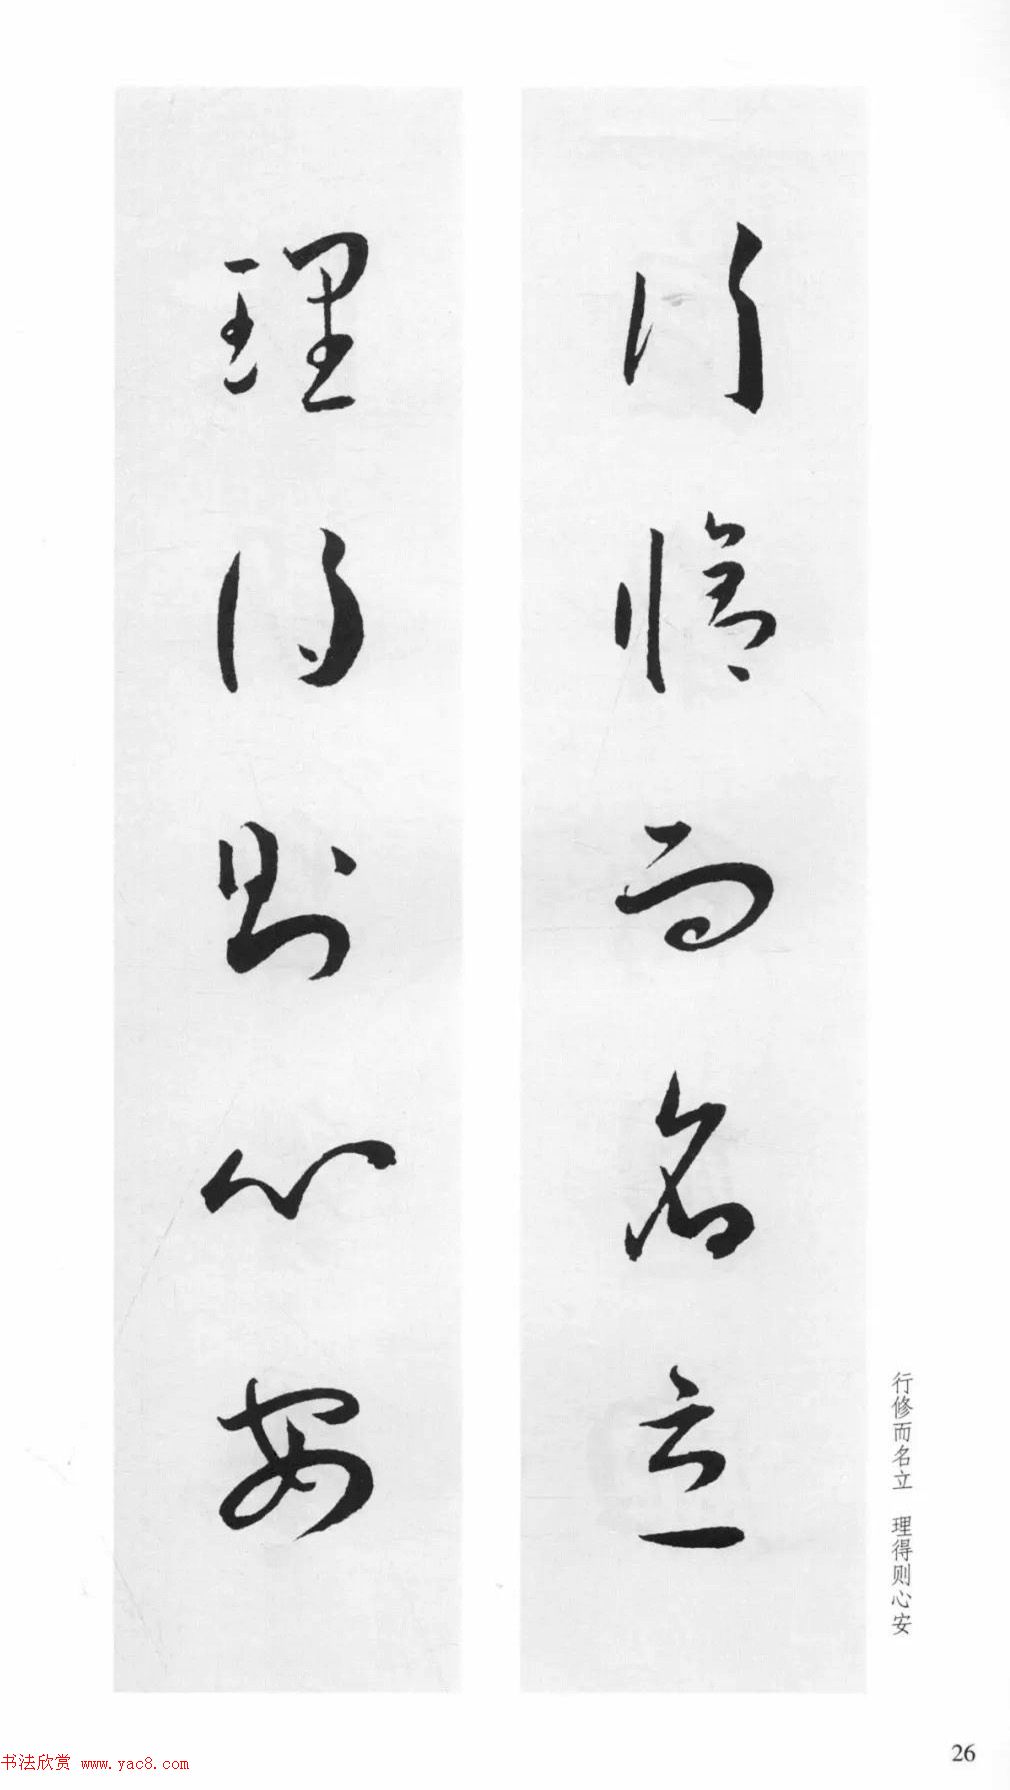 行修而名立
理得则心安
行修而名立 理得则心安
26
书法欣赏 www.yac8.com